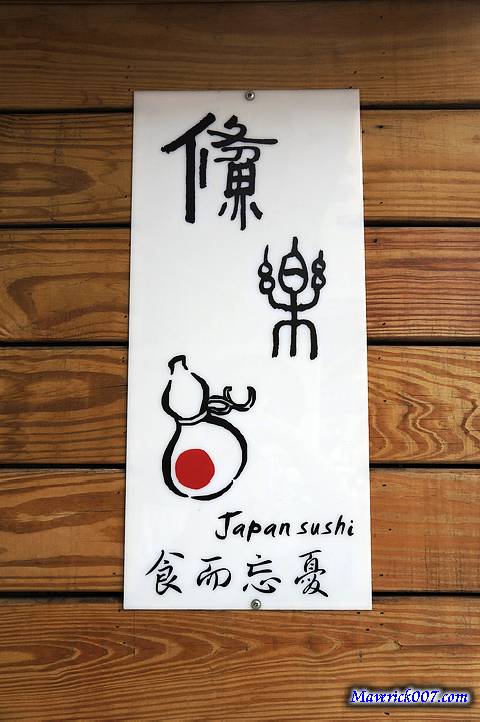 鯈
樂
Japan sushi
食而忘憂
Maverick007.com